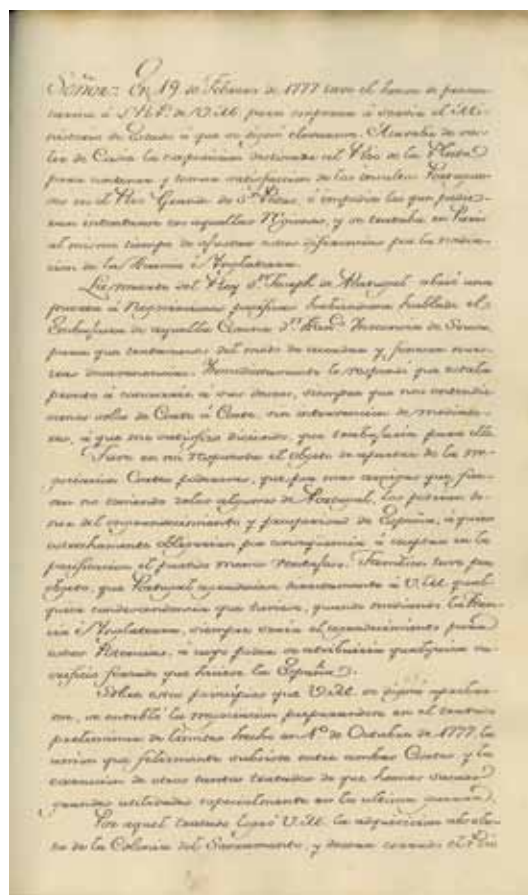 Señor: En 19 de Febrero de 1777 tuve el honor de presen-
tarme á L.R.P. de V.M. para empezar á servir el Mi-
nisterio de Estado á que se dignó elevarme. Acababa de sa-
lir de Cadiz la expedicion destinada al Rio de la Plata
para contener y tomar satisfaccion de los insultos Portugue-
ses en el Rio Grande de Sn. Pedro, é impedir los que pudie-
ran intentarse en aquellas Regiones, y se trataba en Paris
al mismo tiempo de ajustar estas diferencias por la media-
cion de la Francia é Ynglaterra.
La muerte del Rey Dn. Joseph de Portugal abrió una
puerta á negociacion pacifica habiendome hablado el
Embajador de aquella Corona Dn. Franco. Ynocencio de Souza,
para que tratasemos del modo de acordar y fenecer nues-
tras desavenencias. Ymmediatamente le respondí que estaba
pronto á concurrir á sus deseos, siempre que nos entendie-
semos solos de Corte á Corte, sin intervencion de mediado-
res, á que me satisfizo diciendo, que trabajaria para ello.
Tuve en mi respuesta el objeto de apartar de la ne-
gociacion Cortes poderosas, que por mas amigas que fue-
sen no teniendo zelos algunos de Portugal, los podian te-
ner del engrandecimiento y prosperidad de España, á quien
estrechamente obligarian por consequencia á aceptar en la
pacificacion el partido menos ventajoso. Tambien tuve por
objeto, que Portugal agradeciese directamente á V.M. qual-
quiera condescendencia que tuviese, quando mediando la Fran-
cia é Ynglaterra, siempre seria el agradecimiento para
estas Potencias, á cuyo poder se atribuiria qualquiera sa-
crificio forzado que hiciese la España.
Sobre estos principios que V.M. se dignó aprobar-
me, se entabló la negociacion preparandose en el tratado
preliminar de limites hecho en 1º de Octubre de 1777, la
union que felizmente subsiste entre ambas Cortes y la
execucion de otros tantos tratados de que hemos sacado
grandes utilidades especialmente en la ultima guerra.
Por aquel tratado logró V.M. la adquisicion absolu-
ta de la Colonia del Sacramento, y dexar cerrado el Rio